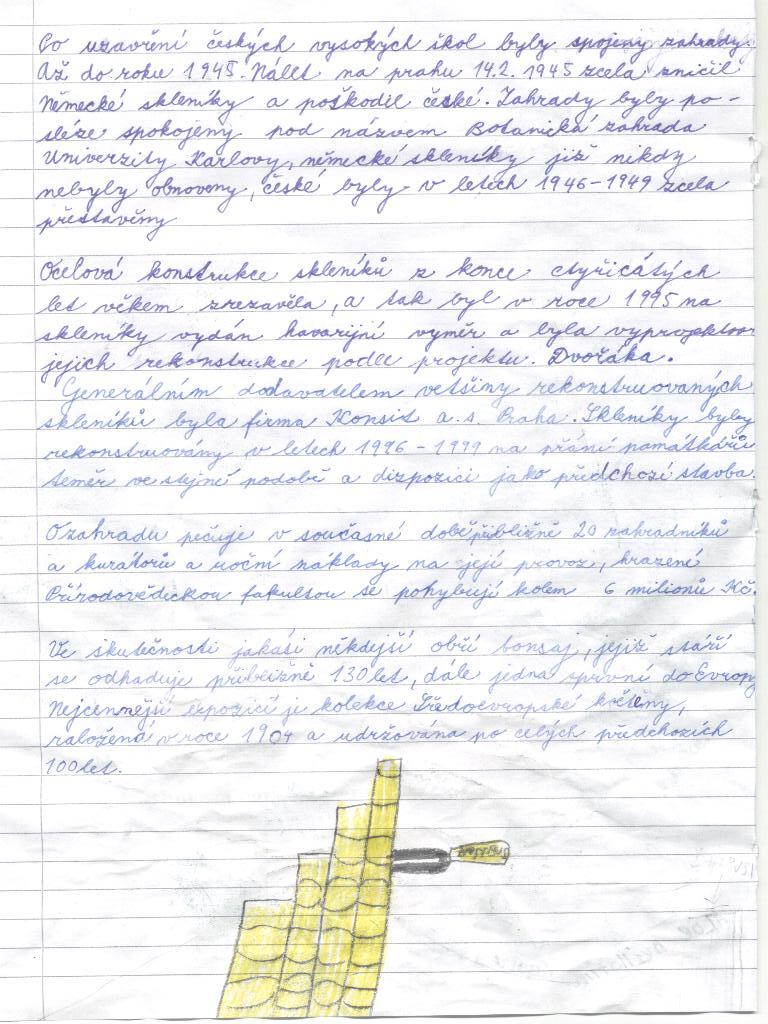 Po uzavření českých vysokých škol byly spojeny zahrady.
Až do roku 1945. Nállt na prahu 14.2. 1945 zcela zničil
Německé skleníky a poškodil české. Zahrady byly po-
sléze spokojeny pod názvem Botanická zahrada
Univerzity Karlovy, německé skleníky již nikdy
nebyly obnoveny, české byly v letech 1946-1949 zcela
přestavěny
Ocelová konstrukce skleníků z konce čtyřicátých
let věkem zrezavěla, a tak byl v roce 1995 na
skleníky vydán havarijní výměr a byla
jejich rekonstrukce podle projektu. Dvořáka.
Generálním dodavatelem vetšiny rekonstruovaných
skleníků byla firma Konsit a.s. Praha. Skleníky byly
rekonstruovány v letech 1996-1999 na přání památkářů
téměr ve stejné podobě a dizpozici jako předchozí stavba.
O zahradu pečuje v současné době přibližně 20 zahradníků
a kurátorů a roční náklady na její provoz, hrazené
Přírodovědickou fakultou se pohybují kolem 6 milionů Kč.
Ve skutečnosti jakási někdejší obří bonsaj, jejiž stáří
se odhaduje přibližně 130 let, dále jedna z první do Evropy
Nejcennější expozicí je kolekce Středoevropské květěny,
založena v roce 1904 a udržována po celých předchozích
100 let.